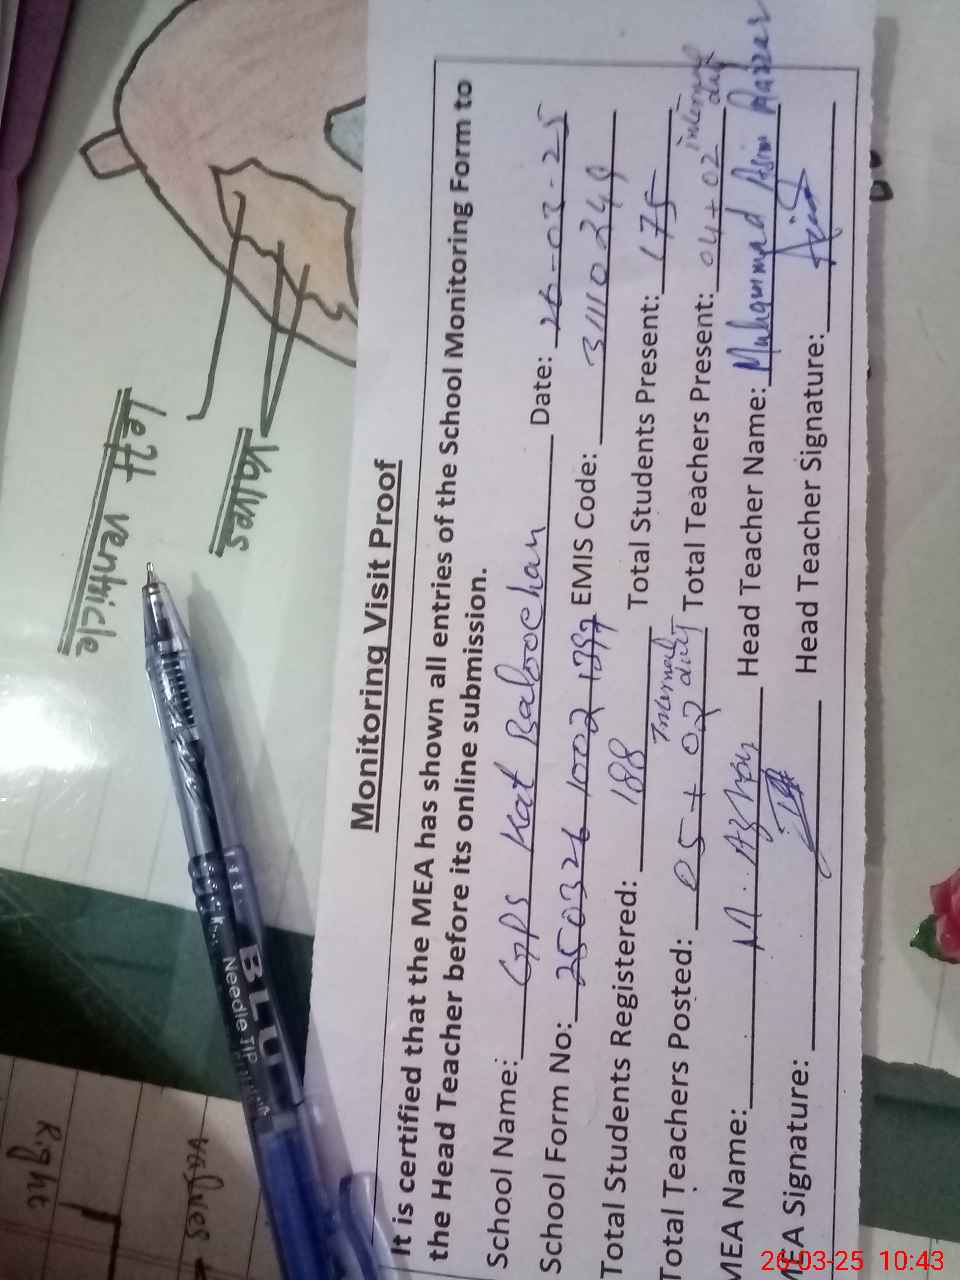 Monitoring Visit Proof
It is certified that the MEA has shown all entries of the School Monitoring Form to
the Head Teacher before its online submission.
School Name: GPS Kot Balochan Date: 26-03-25
School Form No: 250326 1002 1297 EMIS Code: 31110249
Total Students Registered: 188 Total Students Present: 175
Total Teachers Posted: 05 + 02 internal duty Total Teachers Present: 04 + 02 internal duty
MEA Name: M. Head Teacher Name: Muhammad Asim
MEA Signature: Head Teacher Signature:
Left ventricle
Valves
BLU
Needle TIP
Right
valves
26-03-25 10:43